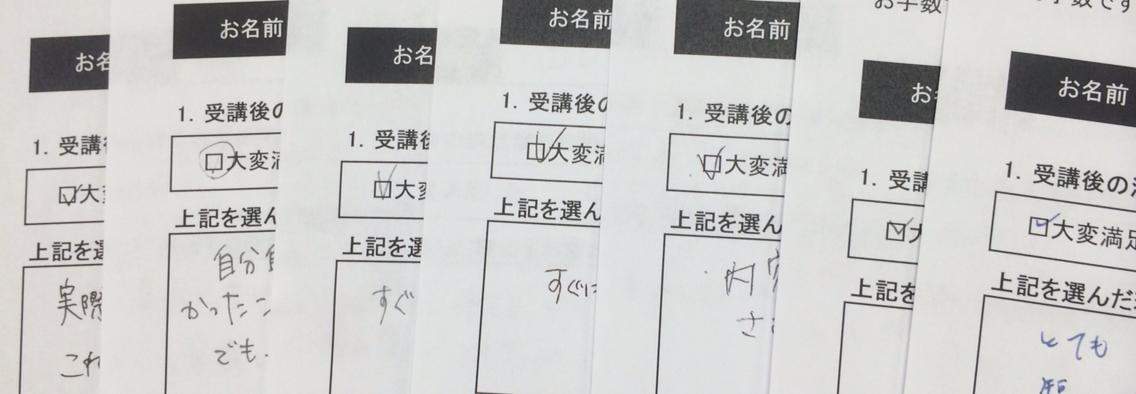 お名
1. 受講
大
上記を
実際
これ
お名前
1. 受講後の
大変
上記を選ん
自分
かったこ
でも.
お名
1. 受講
大変
上記を選
すぐ
お名前
1. 受講後の
大変満
上記を選ん
すぐに
お名前
1. 受講後の
大変満
上記を選ん
内容
さ
お手数
お
1. 受講
大
上記を
手数です
お名前
1. 受講後の
大変満足
上記を選んだ
とても